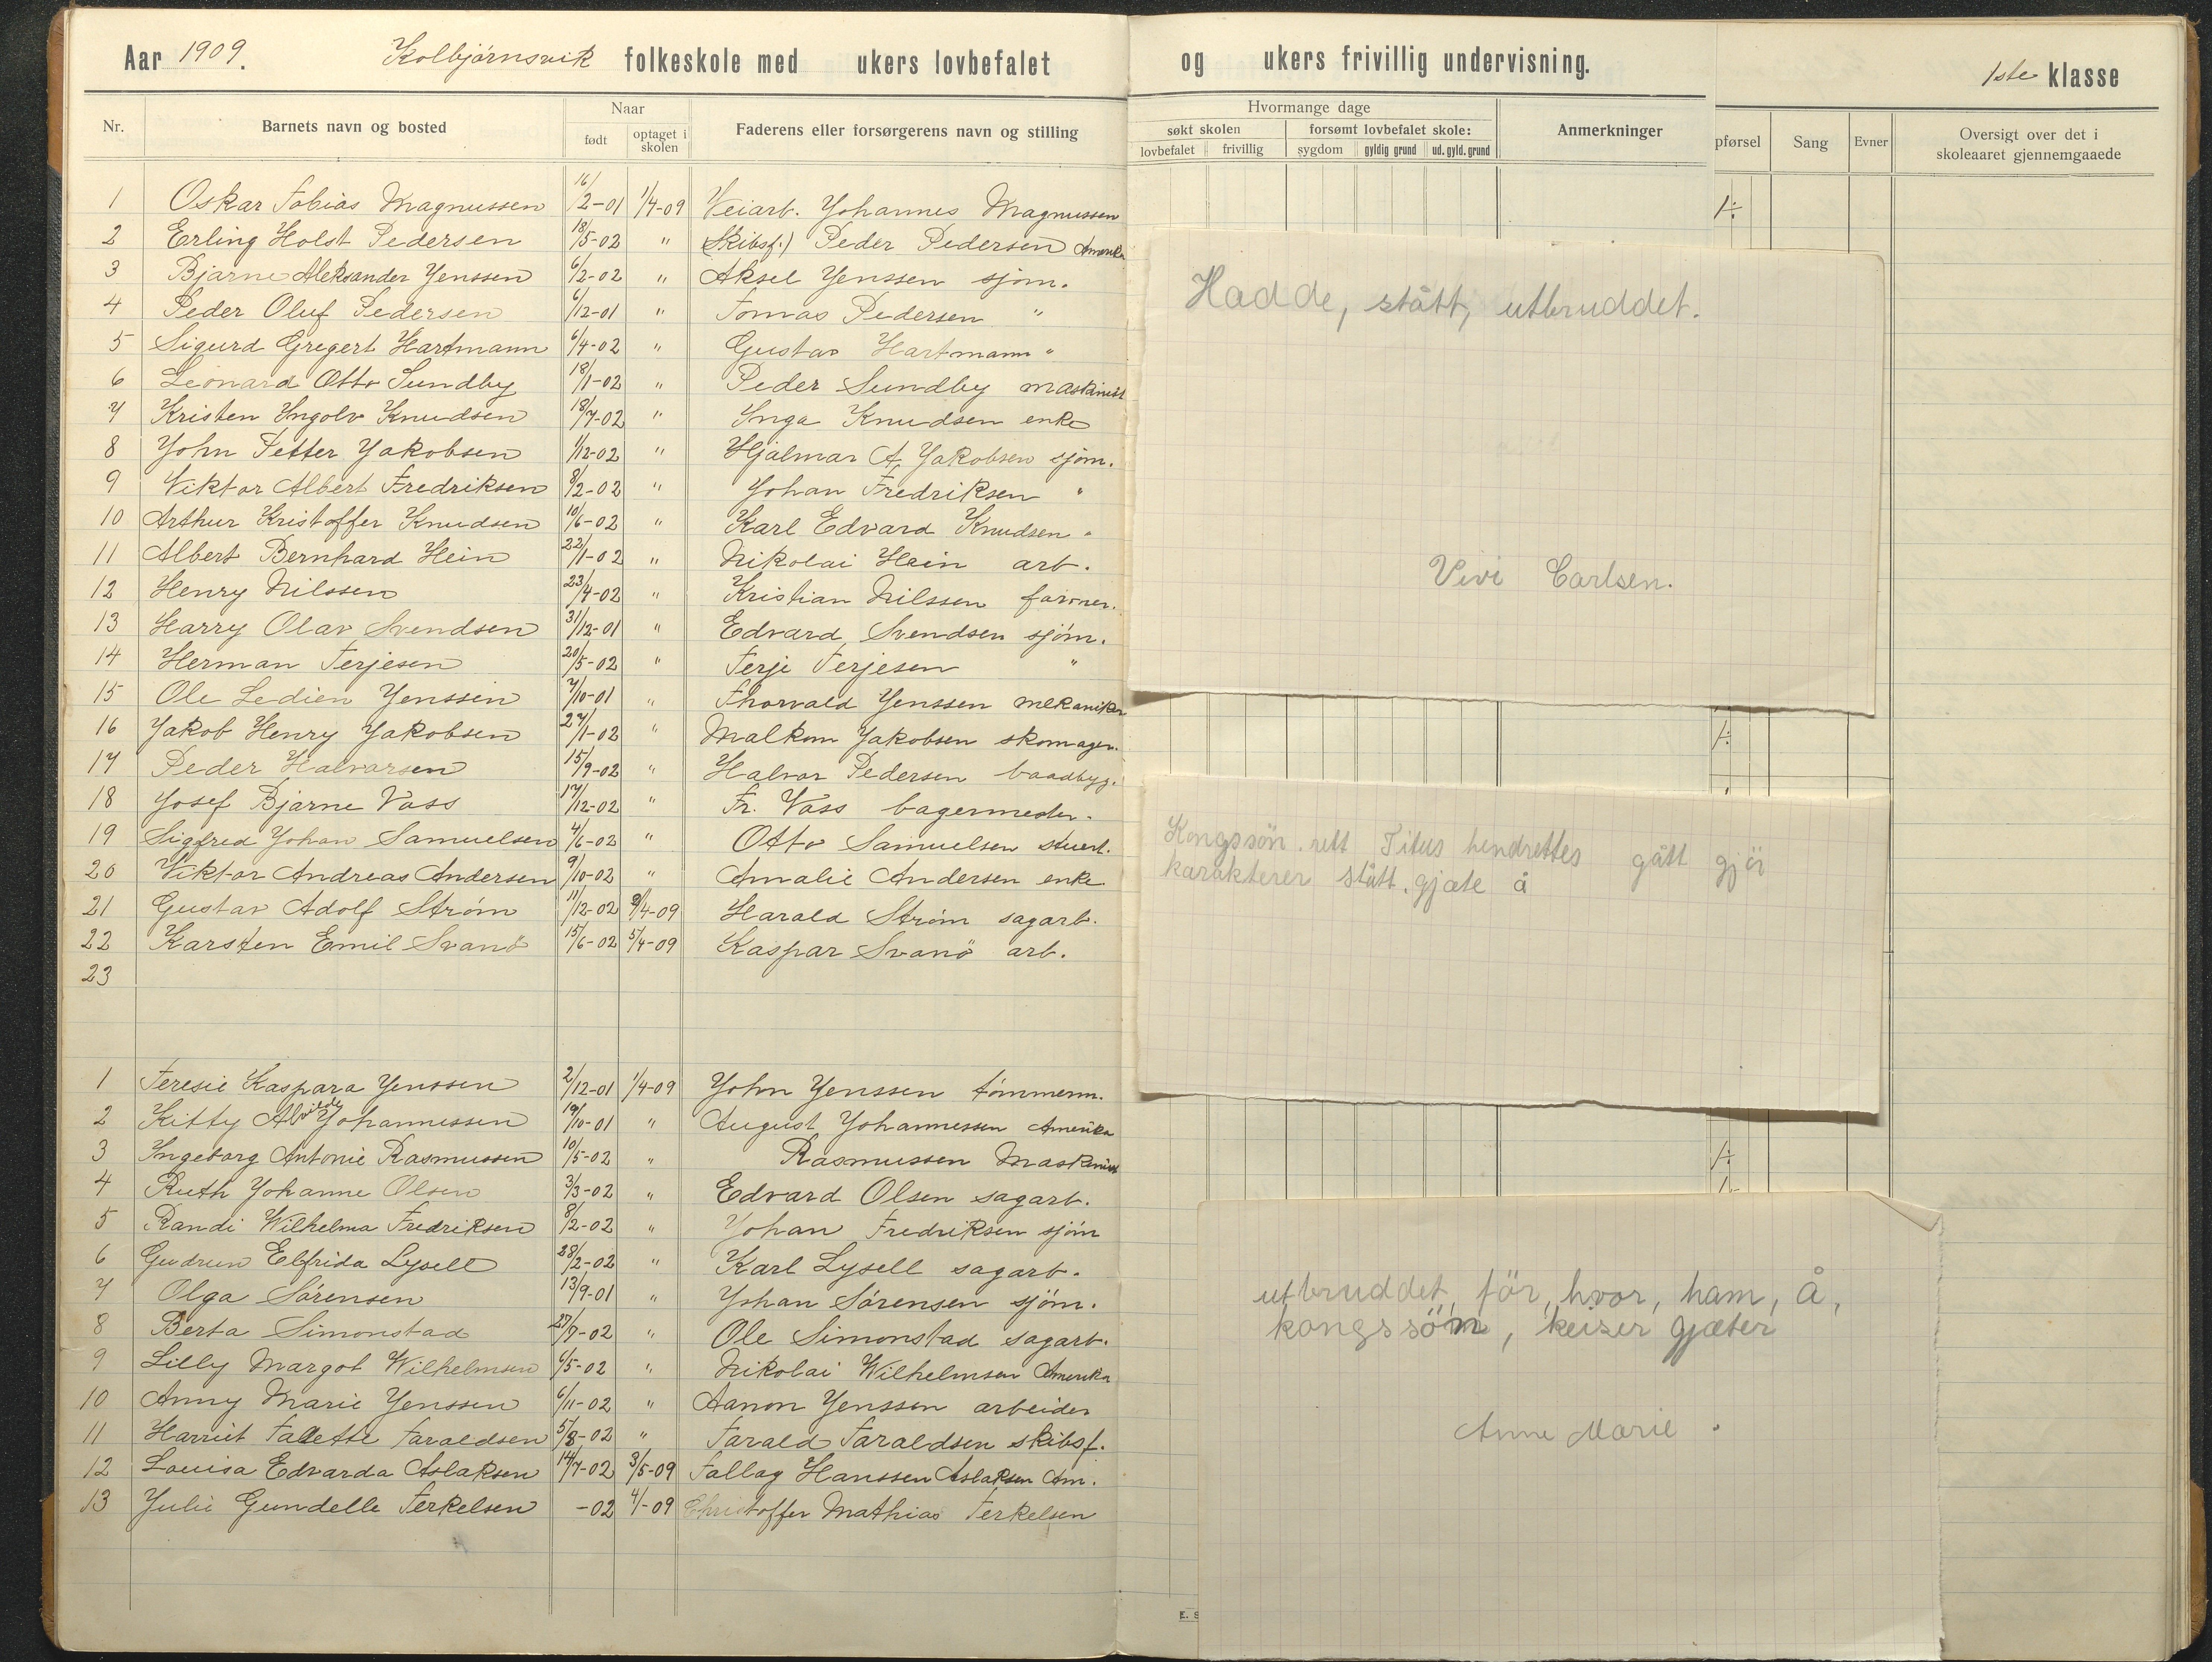 Aar 1909. Kolbjørnsvik folkeskole med ukers lovbefalet og ukers frivillig undervisning. 1ste klasse
Nr. Barnets navn og bosted Naar født optaget i skolen Faderens eller forsørgerens navn og stilling
Hvormange dage
søkt skolen forsømt lovbefalet skole: Anmerkninger
lovbefalet frivillig sygdom gyldig grund ud. gyld. grund
pførsel Sang Evner Oversigt over det i skoleaaret gjennemgaaede
1 Oskar Tobias Magnussen 16/2-01 1/4-09 Veiarb. Johannes Magnussen
2 Erling Holst Pedersen 18/5-02 " (Skibsf.) Peder Pedersen Amerika
3 Bjarne Aleksander Jenssen 6/2-02 " Aksel Jenssen sjøm.
4 Peder Oluf Pedersen 6/12-01 " Tomas Pedersen "
5 Sigurd Gregert Hartmann 6/4-02 " Gustav Hartmann "
6 Leonard Otto Sundby 18/1-02 " Peder Sundby maskinist
7 Kristen Ingolv Knudsen 18/7-02 " Inga Knudsen enke
8 John Petter Jakobsen 1/12-02 " Hjalmar A. Jakobsen sjøm.
9 Viktor Albert Fredriksen 8/2-02 " Johan Fredriksen "
10 Arthur Kristoffer Knudsen 10/6-02 " Karl Edvard Knudsen "
11 Albert Bernhard Hein 22/1-02 " Nikolai Hein arb.
12 Henry Nilssen 23/4-02 " Kristian Nilssen
13 Harry Olav Svendsen 31/12-01 " Edvard Svendsen sjøm.
14 Herman Terjesen 20/5-02 " Terje Terjesen "
15 Ole Ledien Jenssen 7/10-01 " Thorvald Jenssen mekaniker
16 Jakob Henry Jakobsen 27/1-02 " Malkom Jakobsen skomager.
17 Peder Halvorsen 15/9-02 " Halvor Pedersen baadbyg.
18 Josef Bjarne Vass 17/12-02 " Fr. Vass bagermester.
19 Sigfred Johan Samuelsen 4/6-02 " Otto Samuelsen stuert.
20 Viktor Andreas Andersen 9/10-02 " Amalie Andersen enke
21 Gustav Adolf Strøm 11/12-02 2/4-09 Harald Strøm sagarb.
22 Karsten Emil Svanö 15/6-02 5/4-09 Kaspar Svanö arb.
23
1 Teresie Kaspara Jenssen 2/12-01 1/4-09 John Jenssen tømmerm.
2 Kitty Alvilde Johannessen 19/10-01 " August Johannessen Amerika
3 Ingeborg Antonie Rasmussen 10/5-02 " Rasmussen Maskinist
4 Ruth Johanne Olsen 3/3-02 " Edvard Olsen sagarb.
5 Randi Wilhelma Fredriksen 8/2-02 " Johan Fredriksen sjøm
6 Gudrun Elfrida Lysell 28/2-02 " Karl Lysell sagarb.
7 Olga Sørensen 13/9-01 " Johan Sørensen sjøm.
8 Berta Simonstad 27/7-02 " Ole Simonstad sagarb.
9 Lilly Margot Wilhelmsen 6/5-02 " Nikolai Wilhelmsen Amerika
10 Anny Marie Jenssen 6/11-02 " Aanon Jenssen arbeider
11 Harriet Talette Taraldsen 5/8-02 " Tarald Taraldsen skibsf.
12 Louisa Edvarda Aslaksen 14/7-02 3/5-09 Tallag Hanssen Aslaksen Am.
13 Julie Gundelle Terkelsen -02 4/-09 Christoffer Mathias Terkelsen
Hadde, stått, utbruddet.
Vivi Carlsen.
Kongssön. rett Titus hendrettes gått gjör
karakterer stått. gjæte å
utbruddet, för, hvor, ham, å,
kongssöm, keiser gjæter
Anne Marie.
E. S